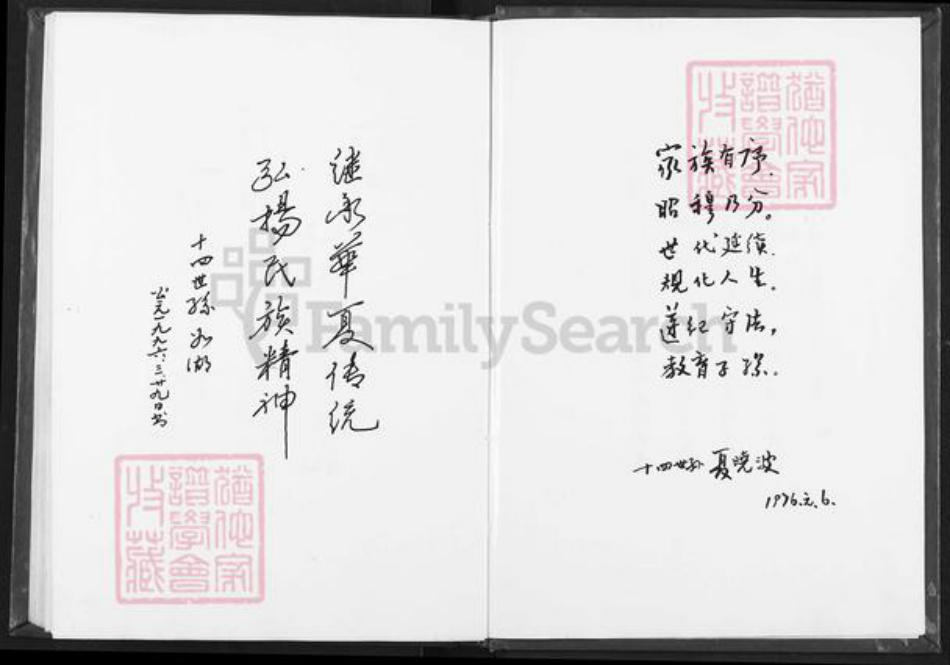 家族有序.
昭穆乃分。
世代延续.
规化人生.
遵纪守法,
教育子孙.
十四世孙 夏晓波
1996.元.6.
猶他家
譜學會
收藏
继承華夏传统
弘揚民族精神
十四世孫
公元一九九六.三.廿九日书
猶他家
譜學會
收藏
FamilySearch